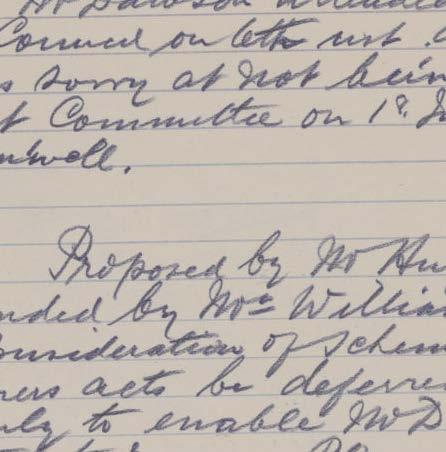 Mr Dawson attended
Council on 6th inst.
s sorry at not being
t Committee on 1st Ju
nwell.
Proposed by Mr Hu
nded by Mrs Willia
onsideration of Schem
ners acts be deferre
uly to enable Mr D